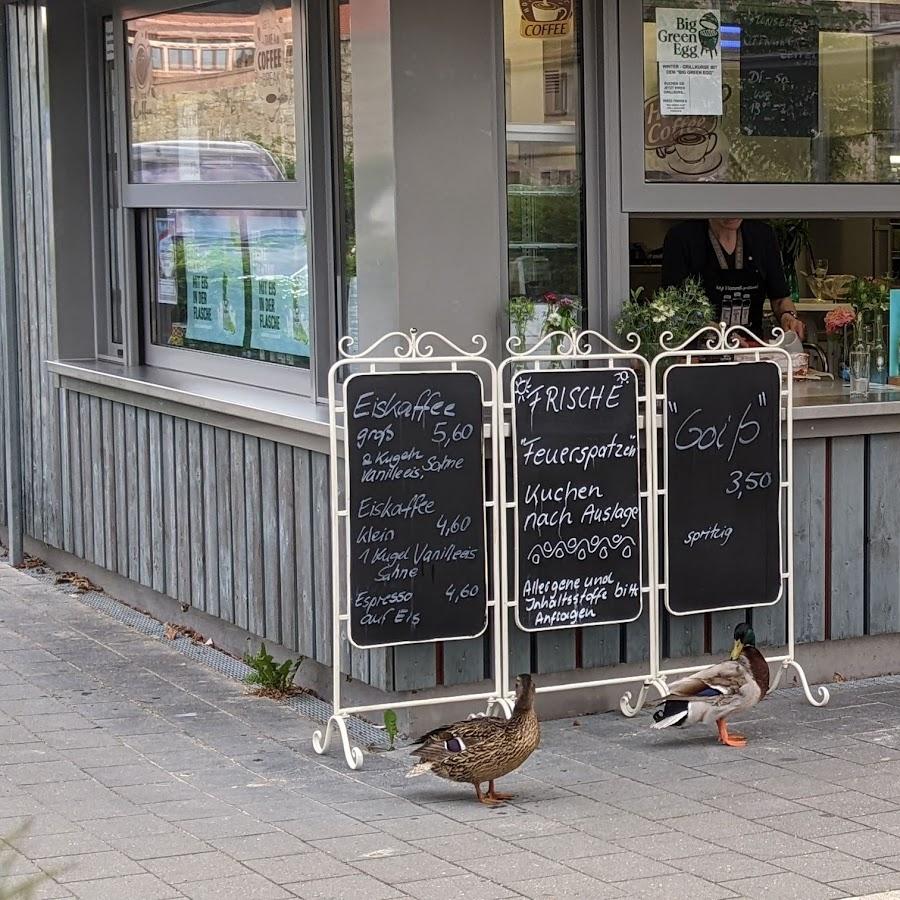 COFFEE
COFFEE
Big
Green
Egg
WINTER - GRILLKURSE MIT
DEM "BIG GREEN EGG"
Coffee
MIT EIS
IN DER
FLASCHE
MIT EIS
IN DER
FLASCHE
Eiskaffee
groß 5,60
2 Kugeln
Vanilleeis, Sahne
Eiskaffee
klein 4,60
1 Kugel Vanilleeis
Sahne
Espresso 4,60
auf Eis
FRISCHE
"Feuerspatzen"
Kuchen
nach Auslage
Allergene und
Inhaltsstoffe bitte
Anfragen
"Goiß"
3,50
spritzig